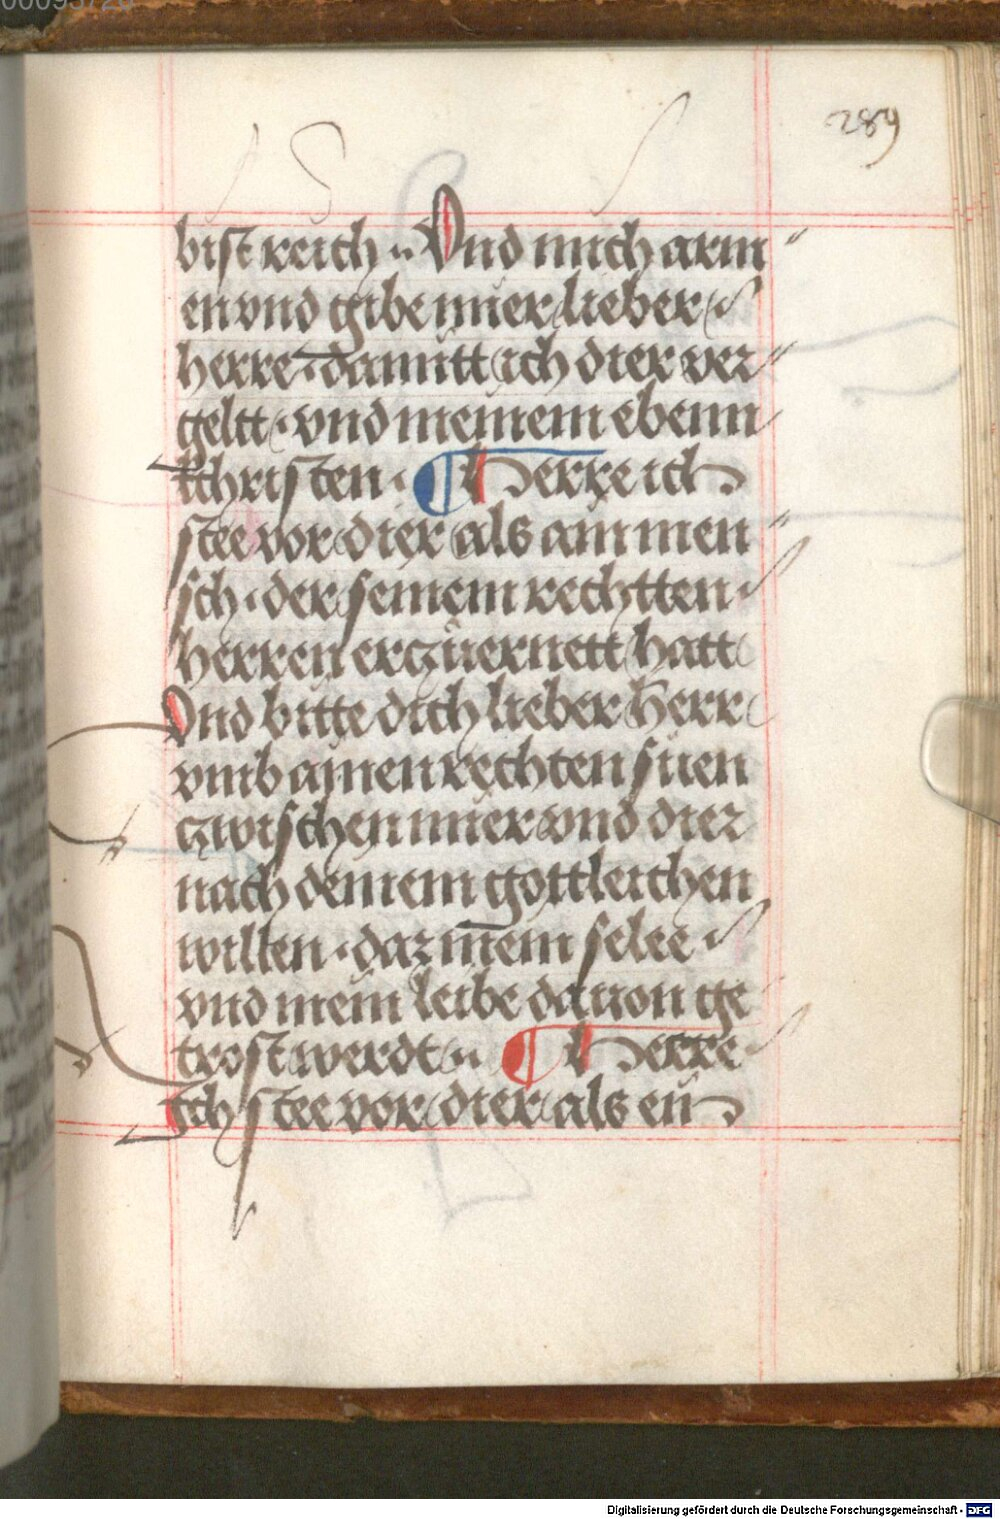 289
bist reich · Vnd mich arm
en vnd gibe mier lieber
herre damitt ich dier ver
geltt · vnd meinem ebenn
kchristen · ¶ Herre ich
stee vor dier als ain men
sch · der seinem rechtten
herren erczuernett hatt
Vnd bitte dich lieber herr
vmb ainen rechten suen
czwischen mier vnd dier
nach deinem gottleichen
willen · daz mein selee
vnd mein leibe dauon ge
trost werdt · ¶ Herre
Ich stee vor dier als ein
Digitalisierung gefördert durch die Deutsche Forschungsgemeinschaft - DFG